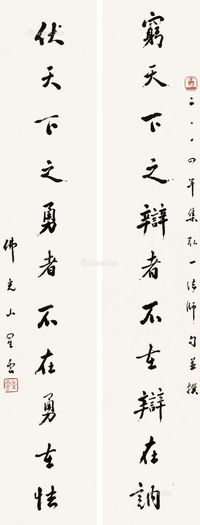 二〇〇四年集弘一法師句並撰
窮天下之辯者不在辯在訥
伏天下之勇者不在勇在怯
佛光山星雲